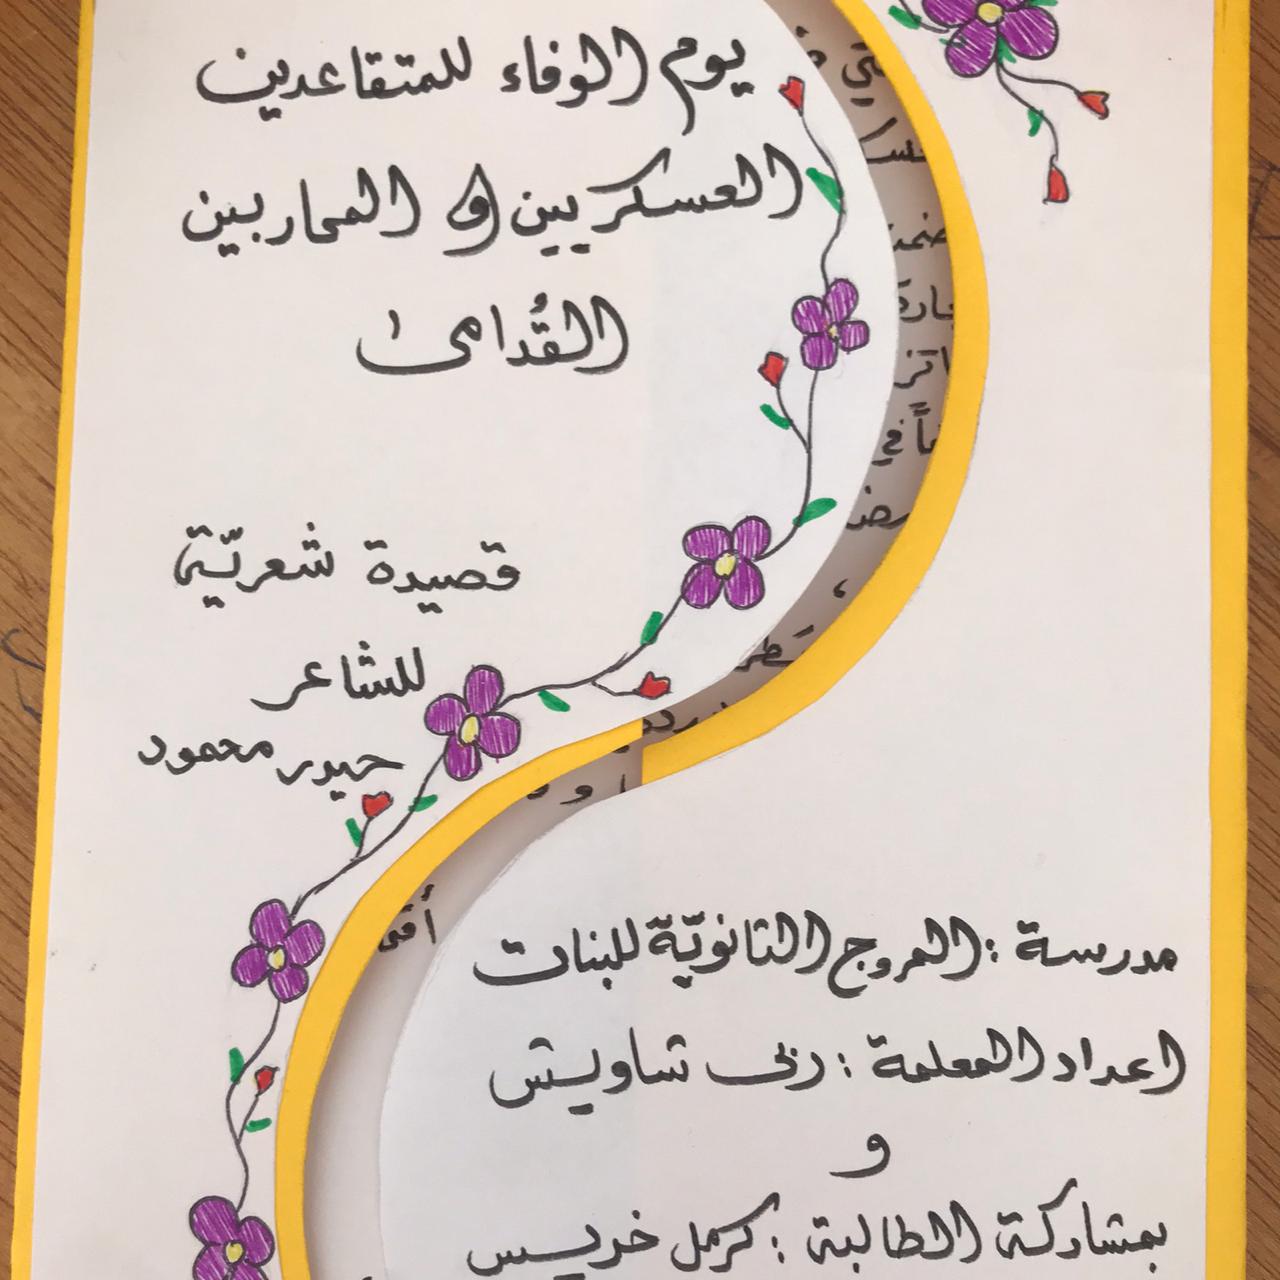 يوم الوفاء للمتقاعدين
العسكريين و المحاربين
القُدامى
قصيدة شعريّة
للشاعر
حيدر محمود
مدرسة : المروج الثانويّة للبنات
اعداد المعلمة : ربى شاويش
و
بمشاركة الطالبة : كرمل خريس